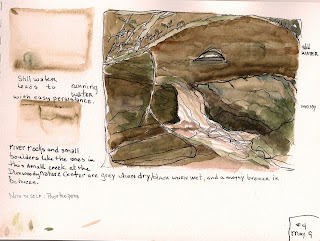 Still water
leads to running
water
with easy persistance.
River rocks and small
boulders like the ones in
this small creek at the
Dunwoody Nature Center are grey when dry/black when wet, and a mossy bronze in
between.
Note to self:
still
water
#9
May 9